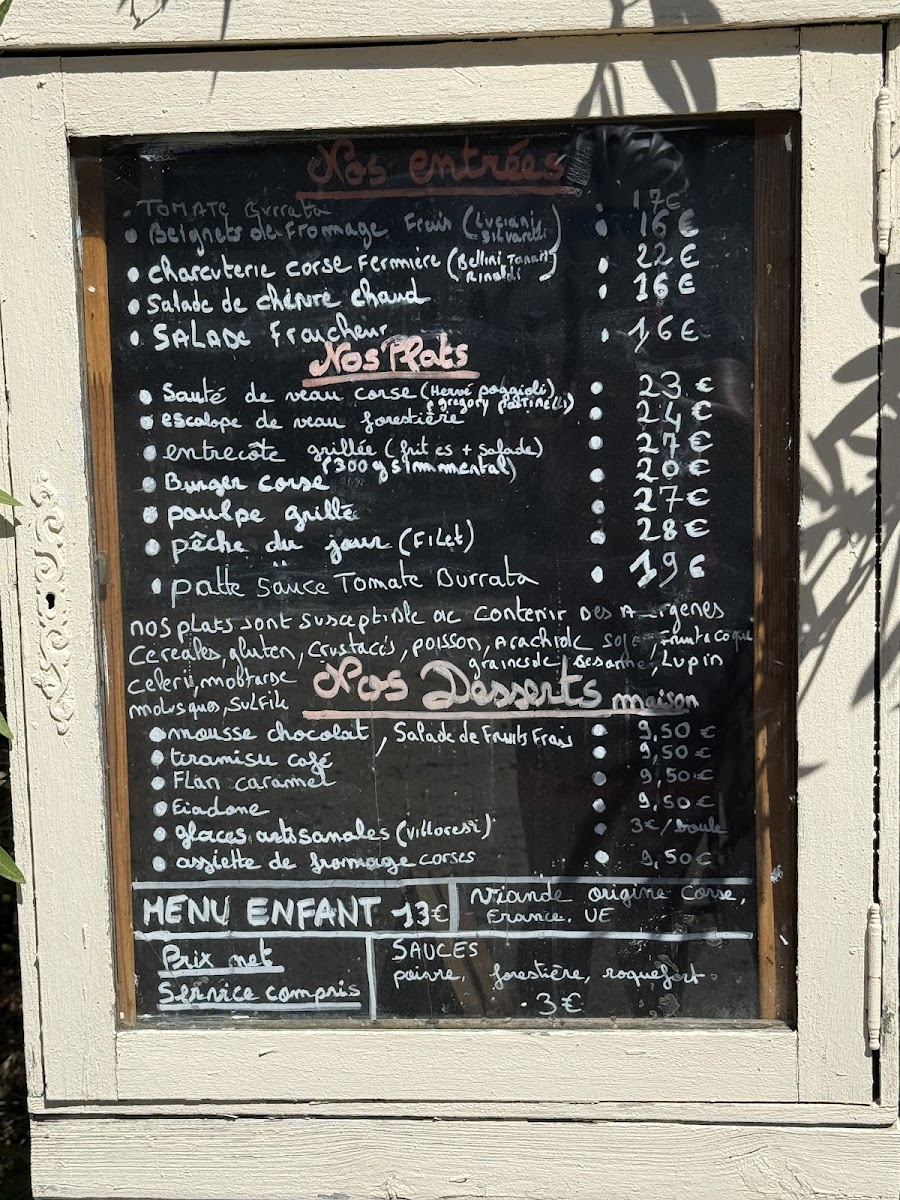 Nos entrées
• TOMATE Burrata • 17€
• Beignets de Fromage Frais (Luciani • 16€
Silvarelli)
• charcuterie corse Fermière (Bellini, • 22€
Rinaldi)
• Salade de chèvre chaud • 16€
• SALADE Fraîcheur • 16€
Nos Plats
• Sauté de veau corse (Hervé poggioli) • 23€
• escalope de veau forestière • 24€
• entrecôte grillée (frites + salade) • 27€
(300 g simmmental)
• Burger corse • 20€
• poulpe grillé • 27€
• pêche du jour (Filet) • 28€
• patte sauce Tomate Burrata • 19€
nos plats sont susceptible de contenir Des A rgenes
Cereales, gluten, Crustacés, poisson, Arachide soja, Fruit a coque
graines de sesame, Lupin
Celeri, moutarde
molusques, Sulfite
Nos Desserts maison
• mousse chocolat, Salade de Fruits Frais • 9,50€
• tiramisu café • 9,50€
• Flan caramel • 9,50€
• Fiadone • 9,50€
• glaces artisanales (Villoresi) • 3€/boule
• assiette de fromage corses • 9,50€
MENU ENFANT 13€
Viande origine Corse,
France, UE
Prix net
Service compris
SAUCES
poivre, forestière, roquefort.
• 3€